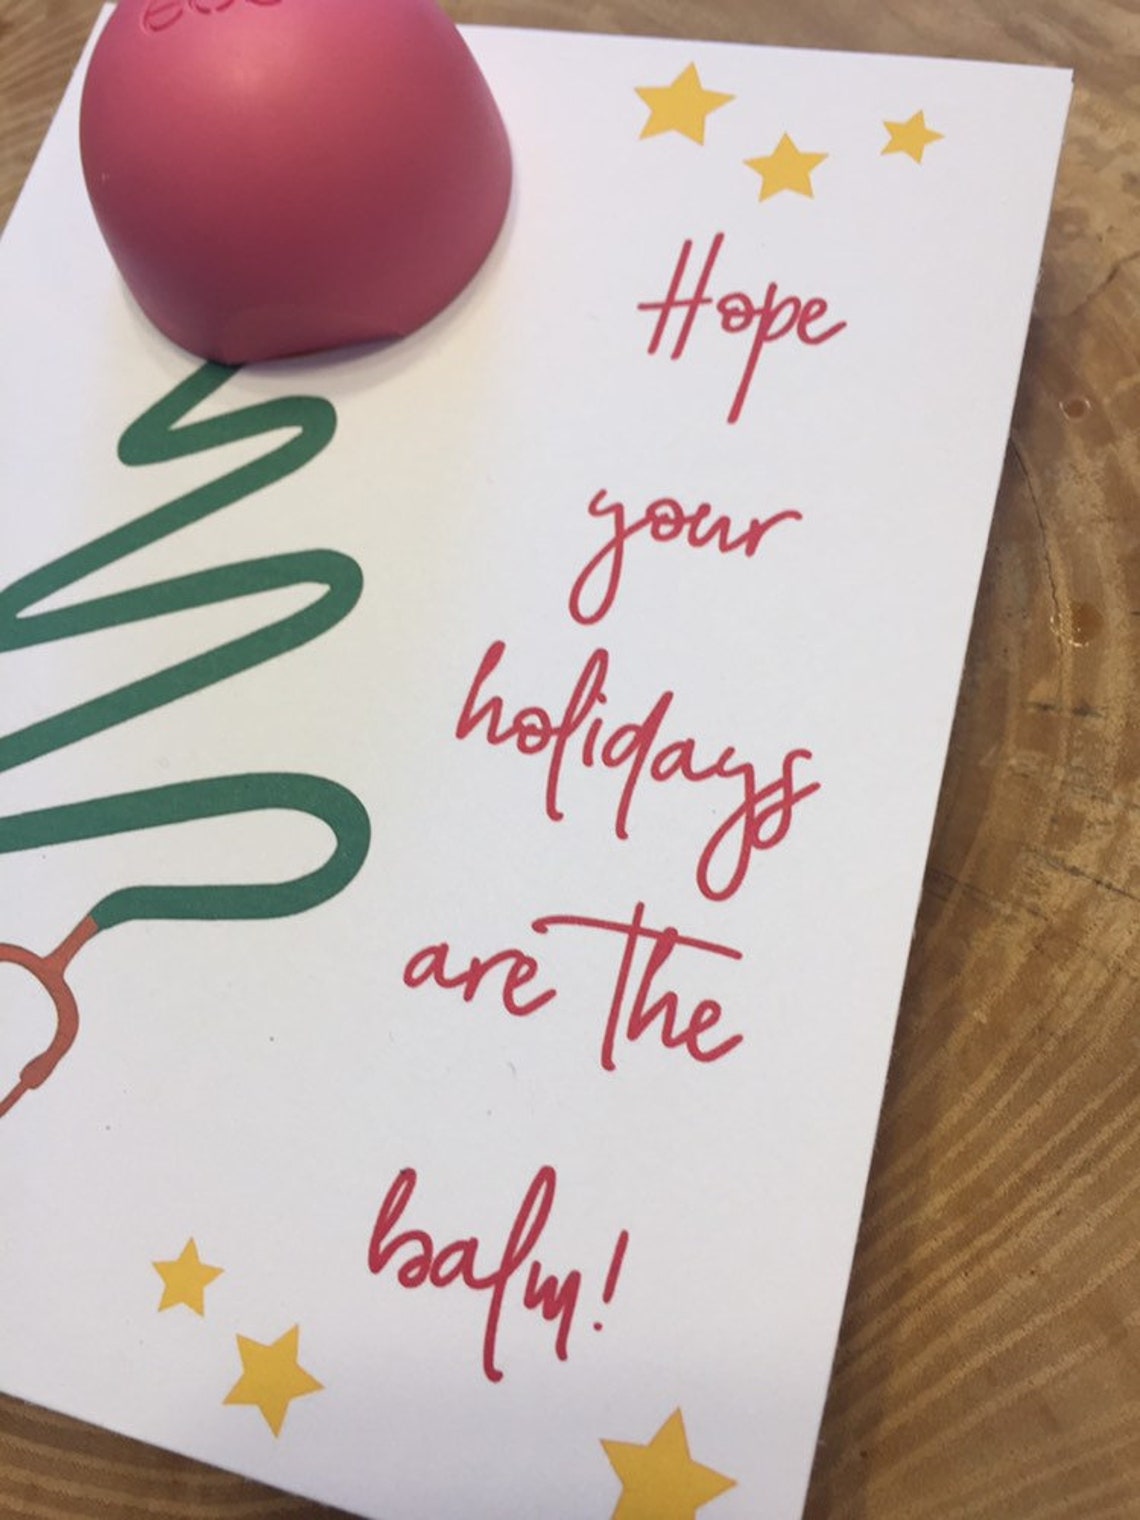 eos
Hope
your
holidays
are the
balm!